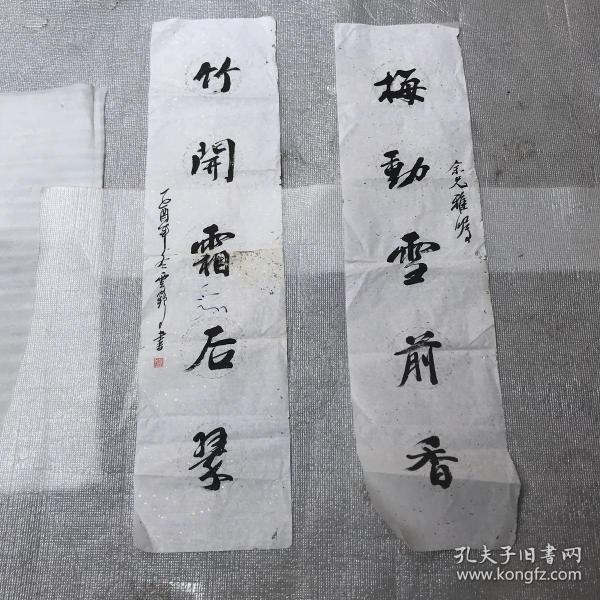 梅動雪前香
余兄雅嘱
竹開霜后翠
乙酉年冬雲野書
孔夫子旧书网
www.kongfz.com